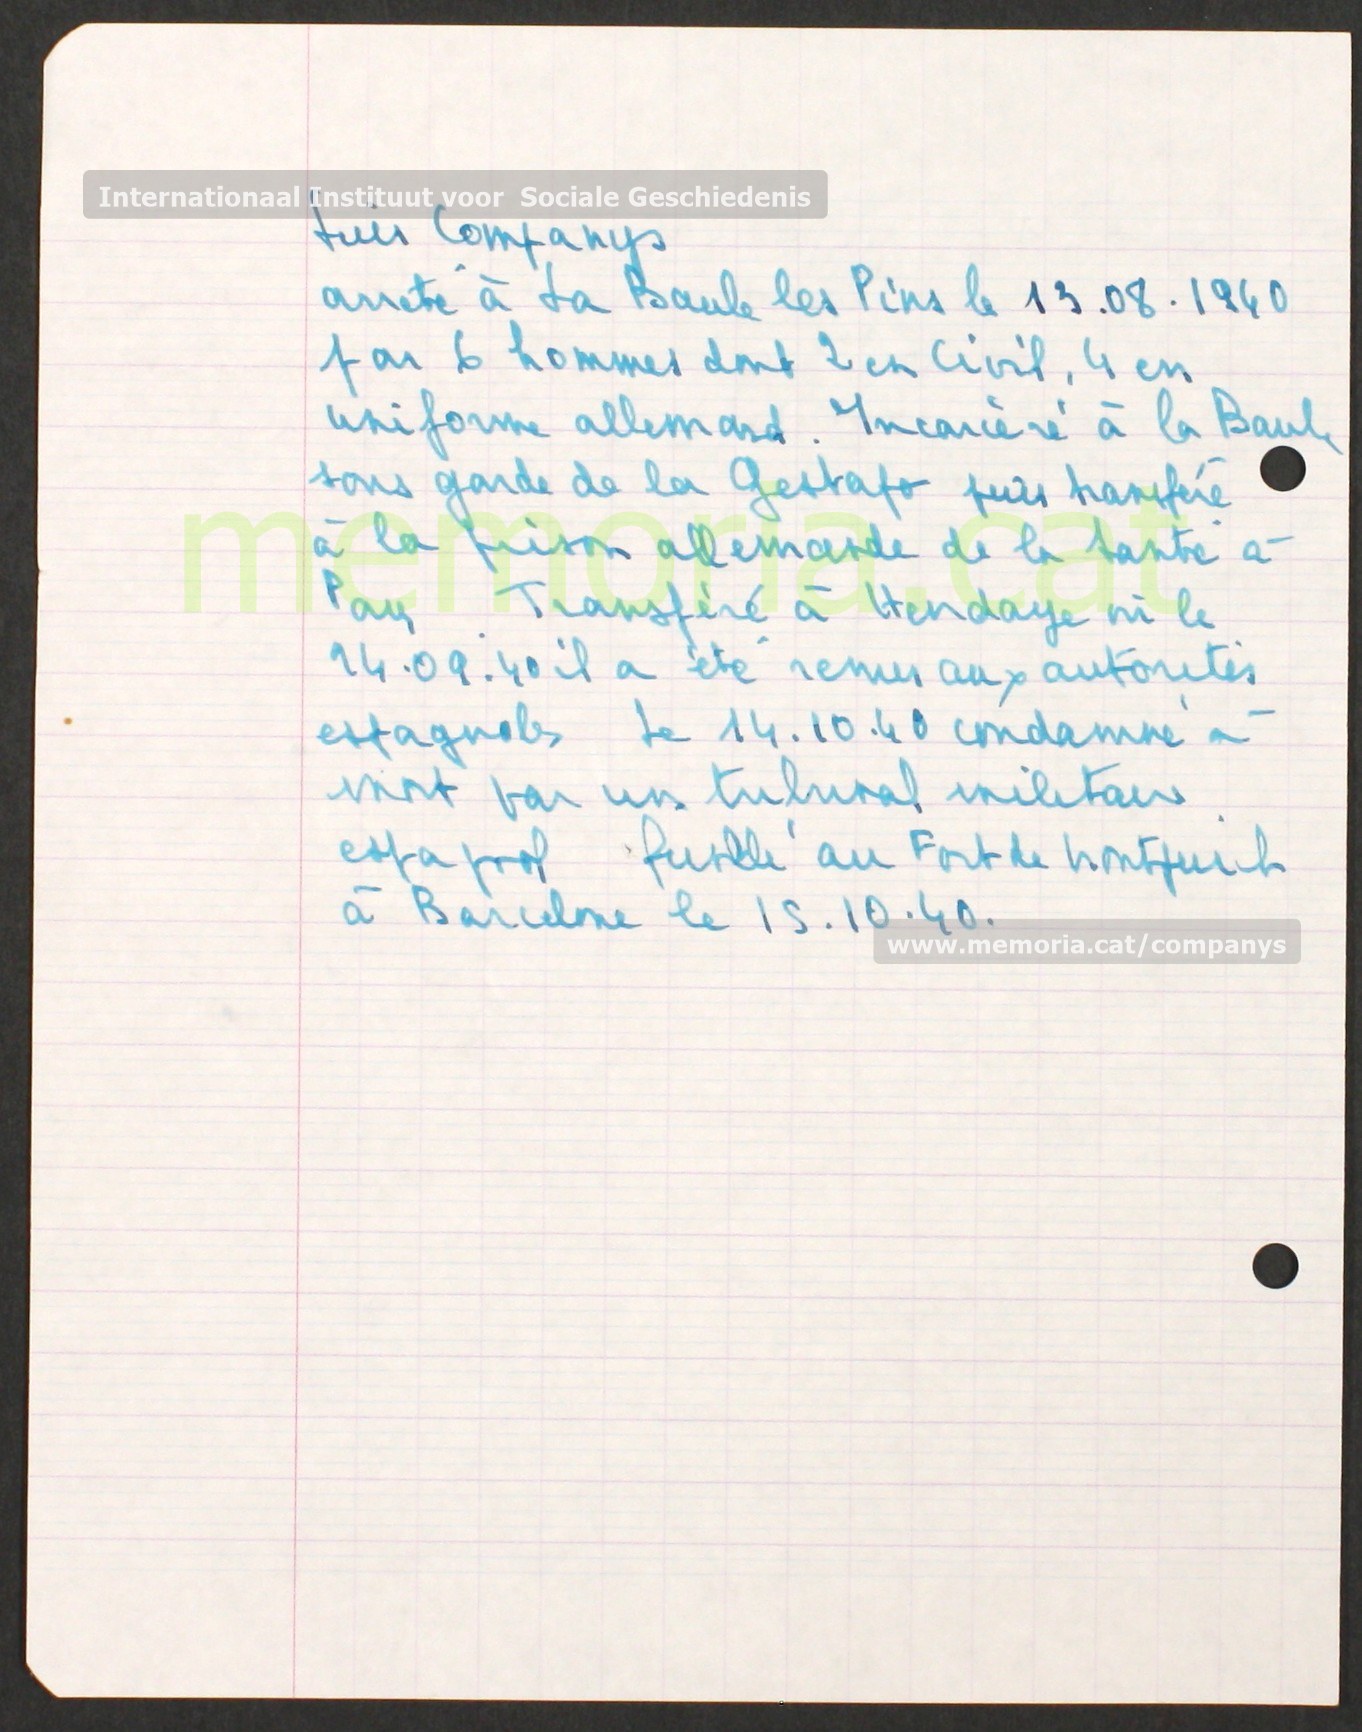 Internationaal Instituut voor Sociale Geschiedenis
Luis Companys
arrêté à La Baule les Pins le 13.08.1940
par 6 hommes dont 2 en Civil, 4 en
uniforme allemand. Incarcéré à la Baule
sous garde de la Gestapo puis transféré
à la prison allemande de la Santé à
Transféré à Hendaye où le
14.09.40 il a été remis aux autorités
espagnoles Le 14.10.40 condamné à
mort par un tribunal militaire
espagnol fusillé au Fort de Montjuich
à Barcelone le 15.10.40.
memoria.cat
www.memoria.cat/companys